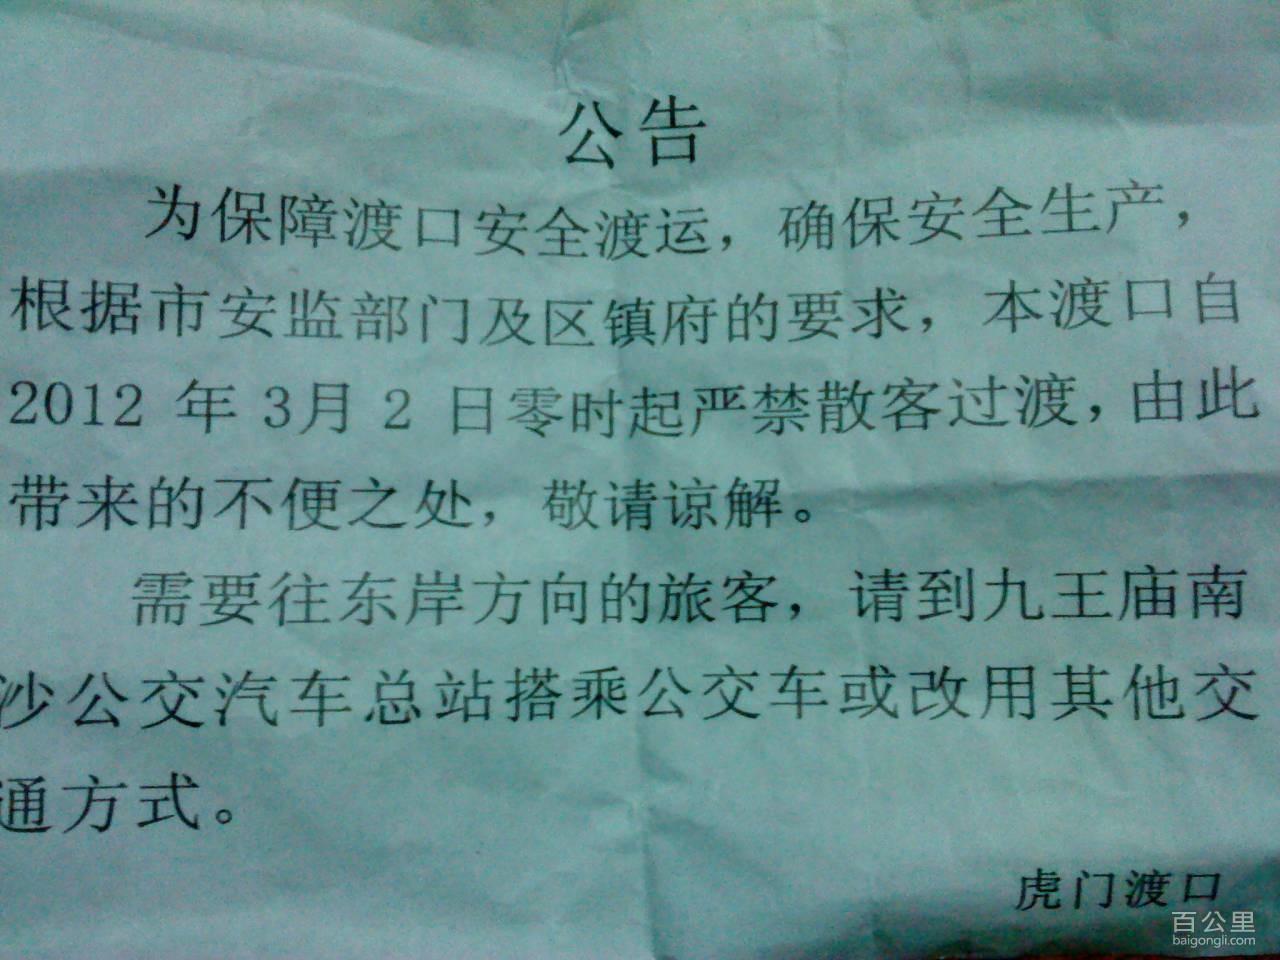 公告
为保障渡口安全渡运，确保安全生产，
根据市安监部门及区镇府的要求，本渡口自
2012 年 3月 2 日零时起严禁散客过渡，由此
带来的不便之处，敬请谅解。
需要往东岸方向的旅客，请到九王庙南
沙公交汽车总站搭乘公交车或改用其他交
通方式。
虎门渡口
百公里
baigongli.com